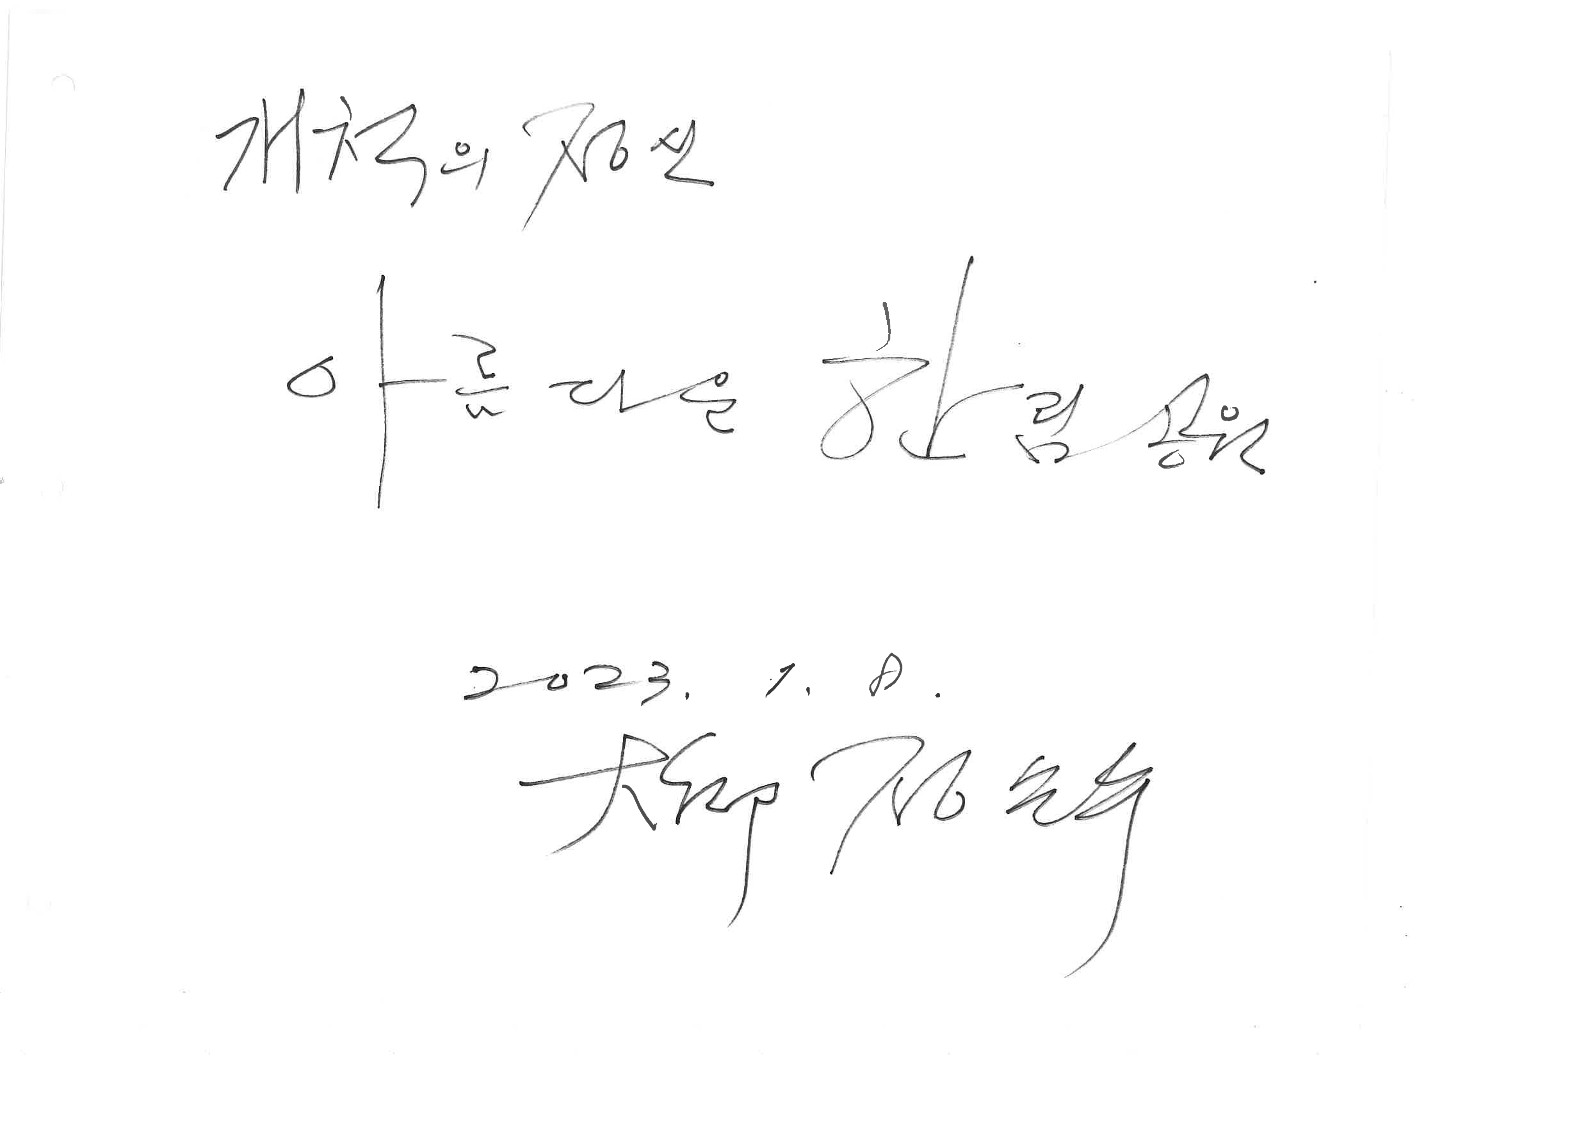 개척의 정신
아름다운 한림공원
2023. 1. 8.
정